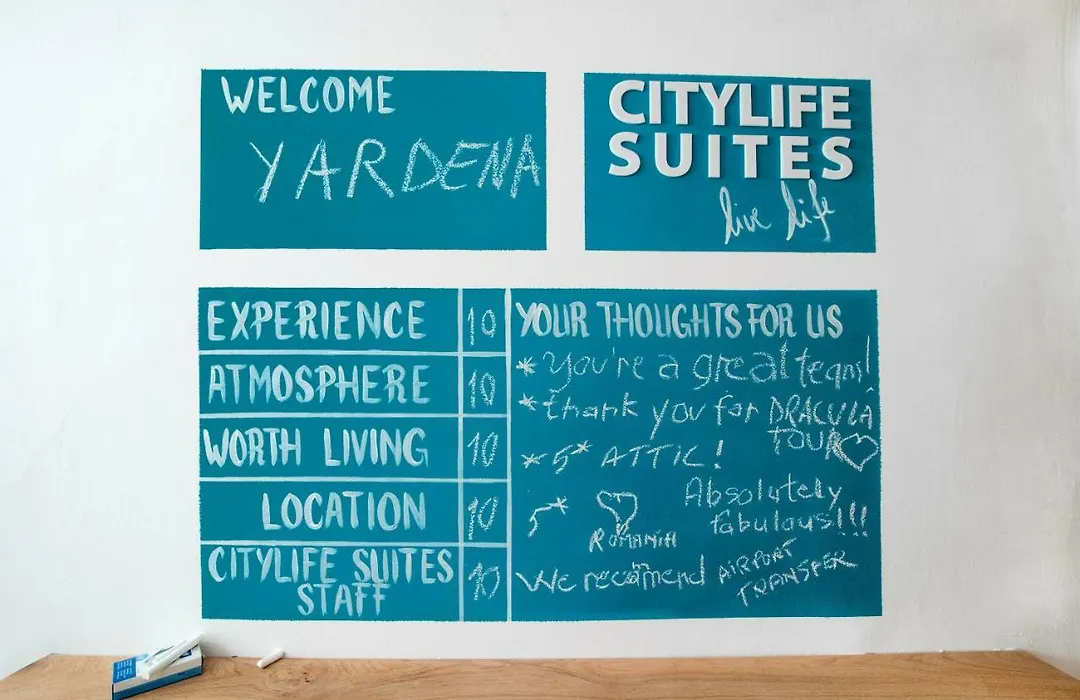 WELCOME
YARDENA
CITYLIFE
SUITES
live life
EXPERIENCE 10
ATMOSPHERE 10
WORTH LIVING 10
LOCATION 10
CITYLIFE SUITES
STAFF 10
YOUR THOUGHTS FOR US
* You're a great team!
* thank you for DRACULA
TOUR
* 5* ATTIC!
5* Romania
Absolutely
fabulous!!!
We recommend AIRPORT
TRANSFER